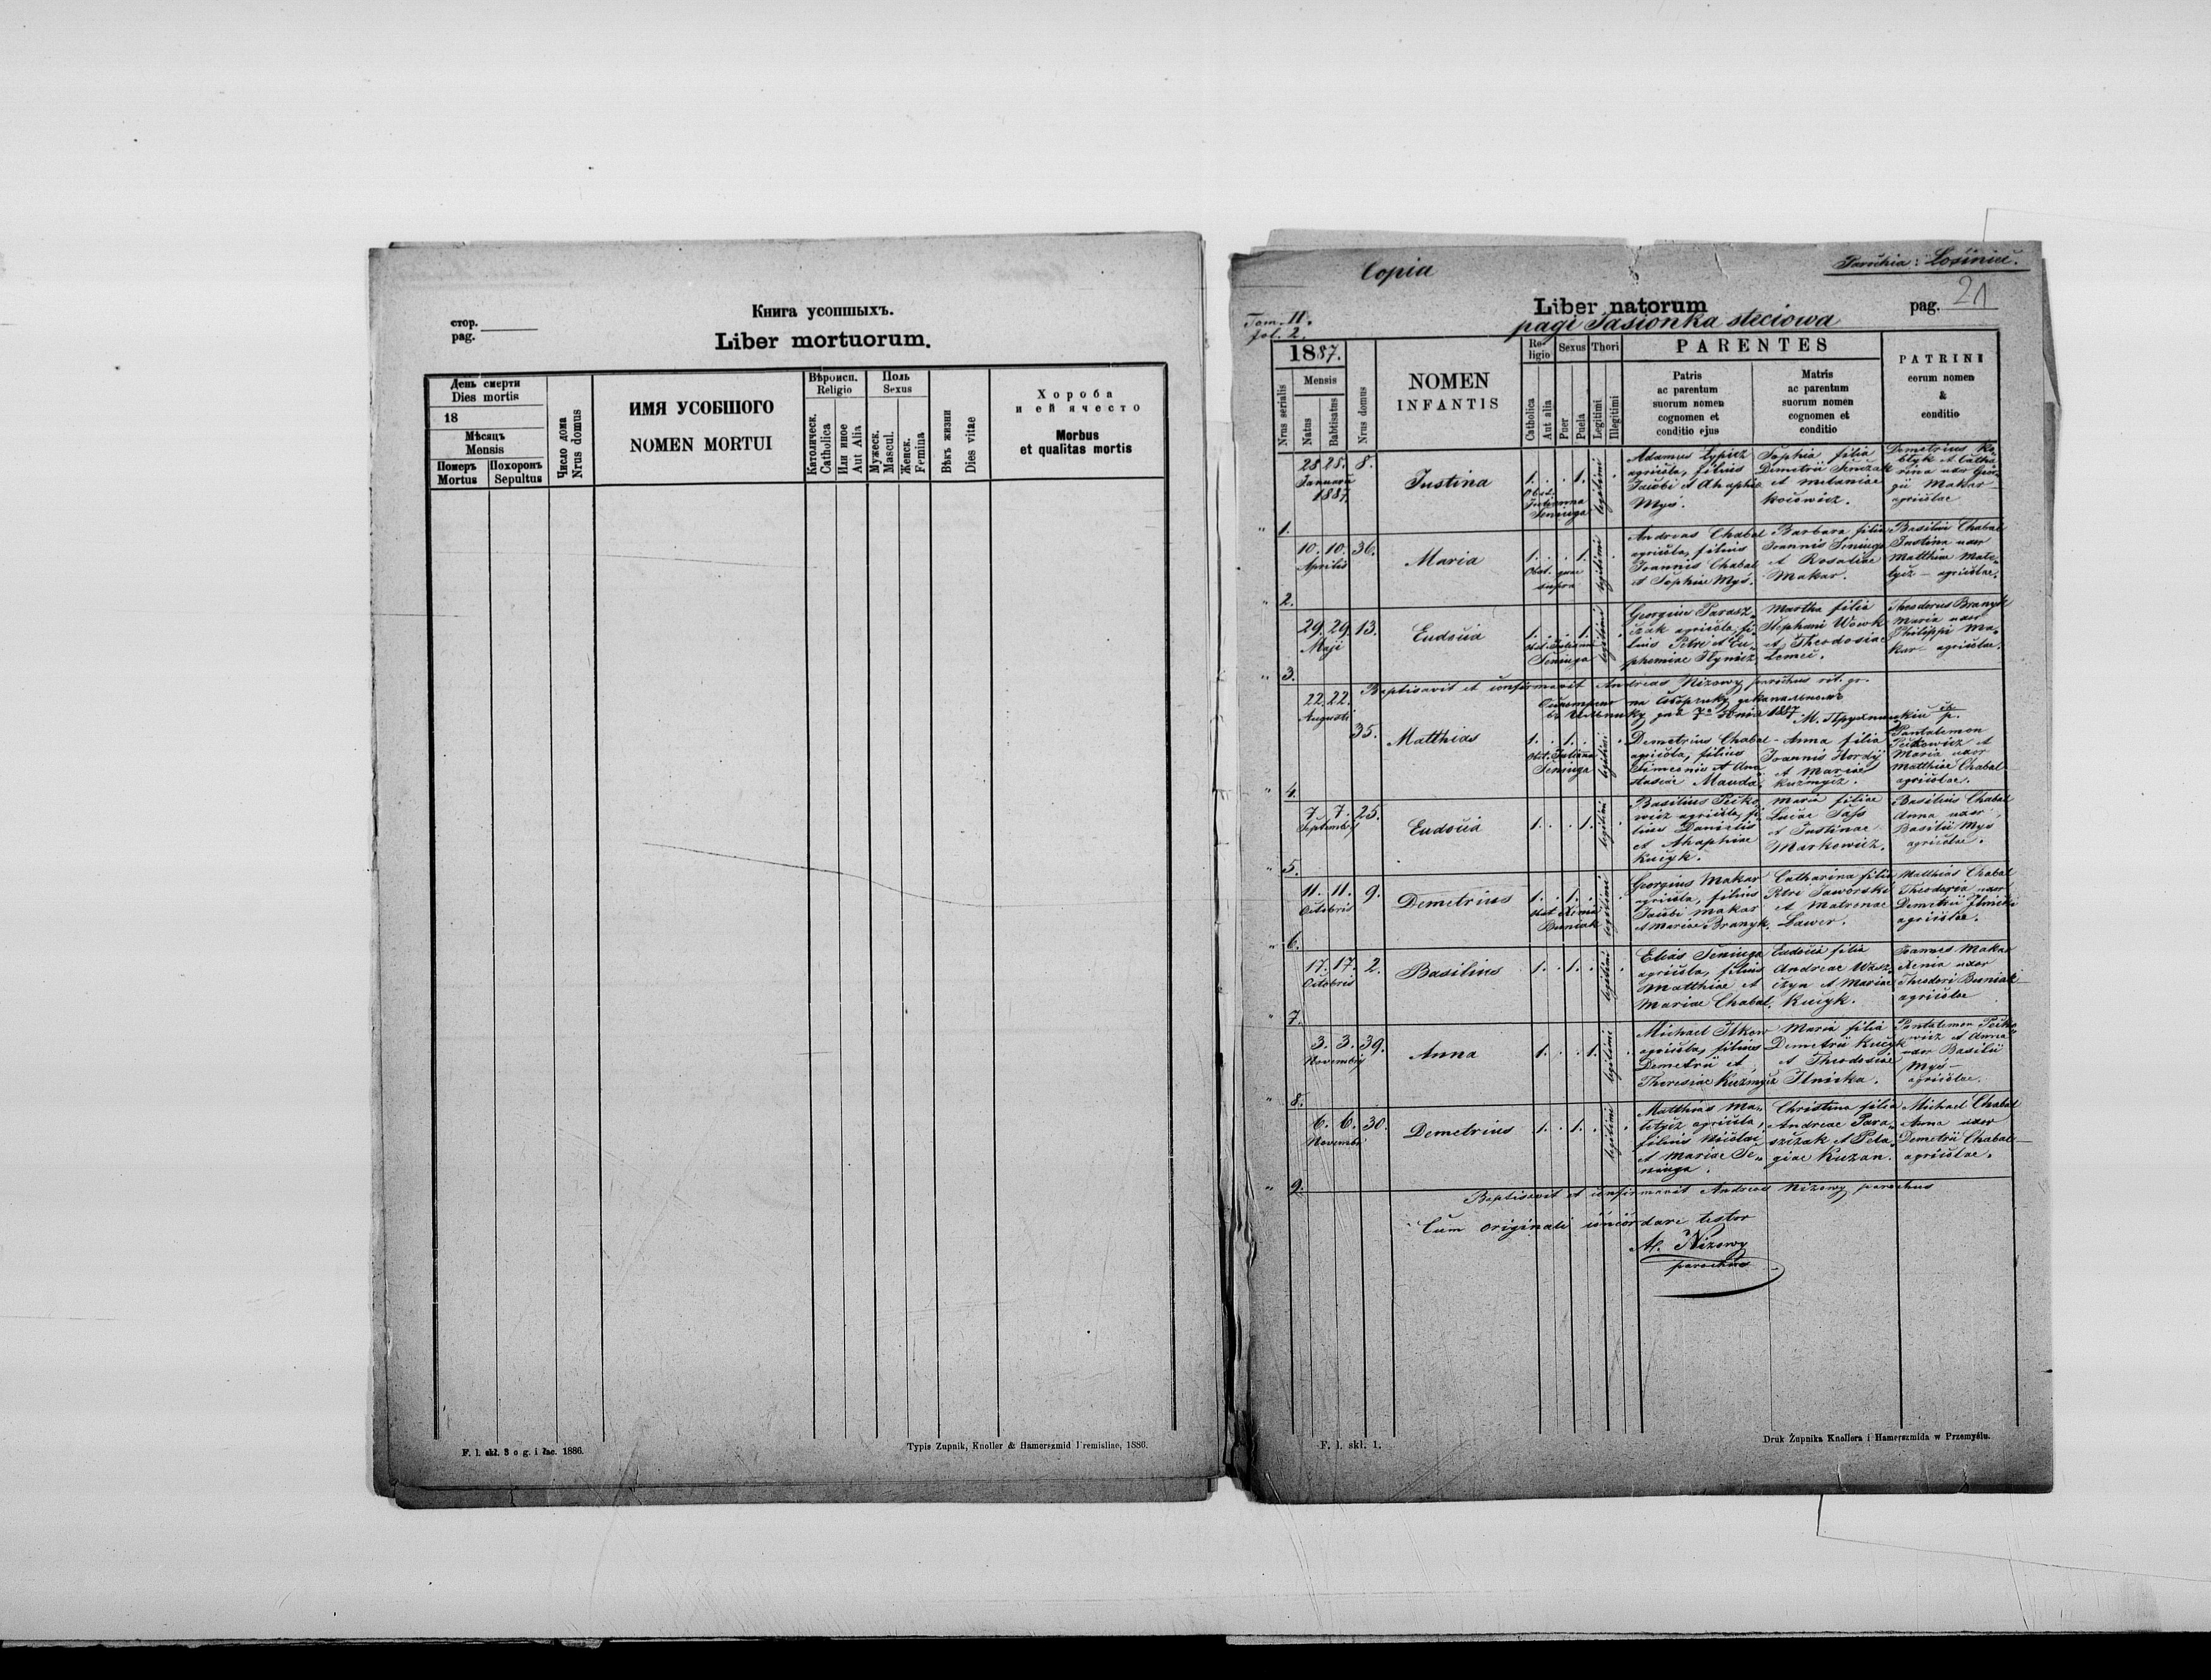 Книга усопшыхъ.
стор.
pag.
Liber mortuorum.
День смерти
Dies mortis
18
Мѣсяцъ
Mensis
Померъ
Mortus
Похоронъ
Sepultus
Число дома
Nrus domus
ИМЯ УСОБШОГО
NOMEN MORTUI
Вѣроисп.
Religio
Католическ.
Catholica
Или иное
Aut Alia
Поль
Sexus
Мужеск.
Mascul.
Женск.
Femina
Вѣкъ жизни
Dies vitae
Хороба
и ей ячесто
Morbus
et qualitas mortis
F. l. skł. 3 o g. i łac. 1886.
Typis Zupnik, Knoller & Hamerszmid Premisliae, 1886.
Copia
Parochia: Łosiniec.
Liber natorum
pag. 21
Tom. II.
fol. 2.
pagi Jasionka steciowa
1887.
Nrus serialis
Mensis
Natus
Babtisatus
Nrus domus
NOMEN
INFANTIS
Religio
Catholica
Aut alia
Sexus
Puer
Puela
Thori
Legitimi
Illegitimi
PARENTES
Patris
ac parentum
suorum nomen
cognomen et
conditio ejus
Matris
ac parentum
suorum nomen
cognomen et
conditio
PATRINI
eorum nomen
&
conditio
1.
28. 28. 8.
Januarii
1887.
Justina
1. . . 1. legitimi .
Obst.
Julianna
Seninga
Adamus Łypicz
agricola, filius
Jacobi et Ahaphia
Myś.
Sophia filia
Demetrii Senczak
et melaniae
Demetrius
et Catha
rina uxor Geor
gii Makar
agricolae
" 2.
10. 10. 36.
Aprilis
Maria
1. . . 1. legitimi .
Obst. quae
supra
Andreas Chabal
agricola, filius
Joannis Chabal
et Sophiae Myś.
Barbara filia
Joannis Seninga
et Rosaliae
Makar.
Basilius Chabal
Justina uxor
Matthiae Mate-
tycz - agricolae.
" 3.
29. 29. 13.
Maji
Eudocia
1. . . 1. legitimi .
obst. Juliana
Seninga
Georgius Parasz-
czak agricola, fi-
lius Petri et Eu-
phemiae Ilynicz
Martha filia
Stephani Wowk
et Theodosiae
Łemci.
Theodorus Branyk
Maria uxor
Philippi Ma-
kar agricolae.
Baptisavit et confirmavit Andreas Nizowy parochus rit. gr.
4.
22. 22. 35.
Augusti
Matthias
1. . 1. . legitimi .
Obst. Juliana
Seninga
Demetrius Chabal
agricola, filius
Simeonis et Ana
stasiae Mauda.
Anna filia
Joannis Hordij
et Mariae
Kuźmycz.
Pantalemon
Peckowicz et
Maria uxor
Matthiae Chabal
agricolae.
" 5.
7. 7. 25.
Septembr
Eudocia
1. . . 1. legitimi .
Basilius Pecko
wicz agricola, fi
lius Danielis
et Ahaphiae
Kucyk.
Maria filiae
Lucae Sass
et Justinae
Markowicz.
Basilius Chabal
Anna uxor
Basilii Myś
agricolae.
" 6.
11. 11. 9.
Octobris
Demetrius
1. . 1. . legitimi .
obst Xenia
Buniak
Georgius Makar
agricola, filius
Jacobi Makar
et Mariae Branyk.
Catharina filia
Petri Jaworski
et Matronae
Lawer.
Matthias Chabal
Theodosia uxor
Demetrii Ilnicki
agricolae.
" 7.
17. 17. 2.
Octobris
Basilius
1. . 1. . legitimi .
Elias Seninga
agricola, filius
Matthiae et
Mariae Chabal.
Eudocia filia
Andreae Wasz-
czyn et Mariae
Kucyk.
Joannes Makar
Xenia uxor
Theodori Buniak
agricolae
" 8.
3. 3. 39.
Novembris
Anna
1. . . 1. legitimi .
Michael Ilkow
agricola, filius
Demetrii et
Theresiae Kuzmycz
Maria filia
Demetrii Kucyk
et Theodosiae
Ilnicka.
Pantalemon Pecko
wicz et Anna
uxor Basilii
Myś -
agricolae.
" 9.
6. 6. 30.
Novembr
Demetrius
1. . 1. . legitimi .
Matthias Ma-
tetycz agricola,
filius Nicolai
et Mariae Se-
ninga.
Christina filia
Andreae Para-
szczak et Pela-
giae Kuzan.
Michael Chabal
Anna uxor
Demetrii Chabal
agricolae.
Baptisavit et confirmavit Andreas Nizowy parochus
Cum originali concordare testor
A. Nizowy
parochus
F. l. skł. 1.
Druk Żupnika Knollera i Hamerszmida w Przemyślu.